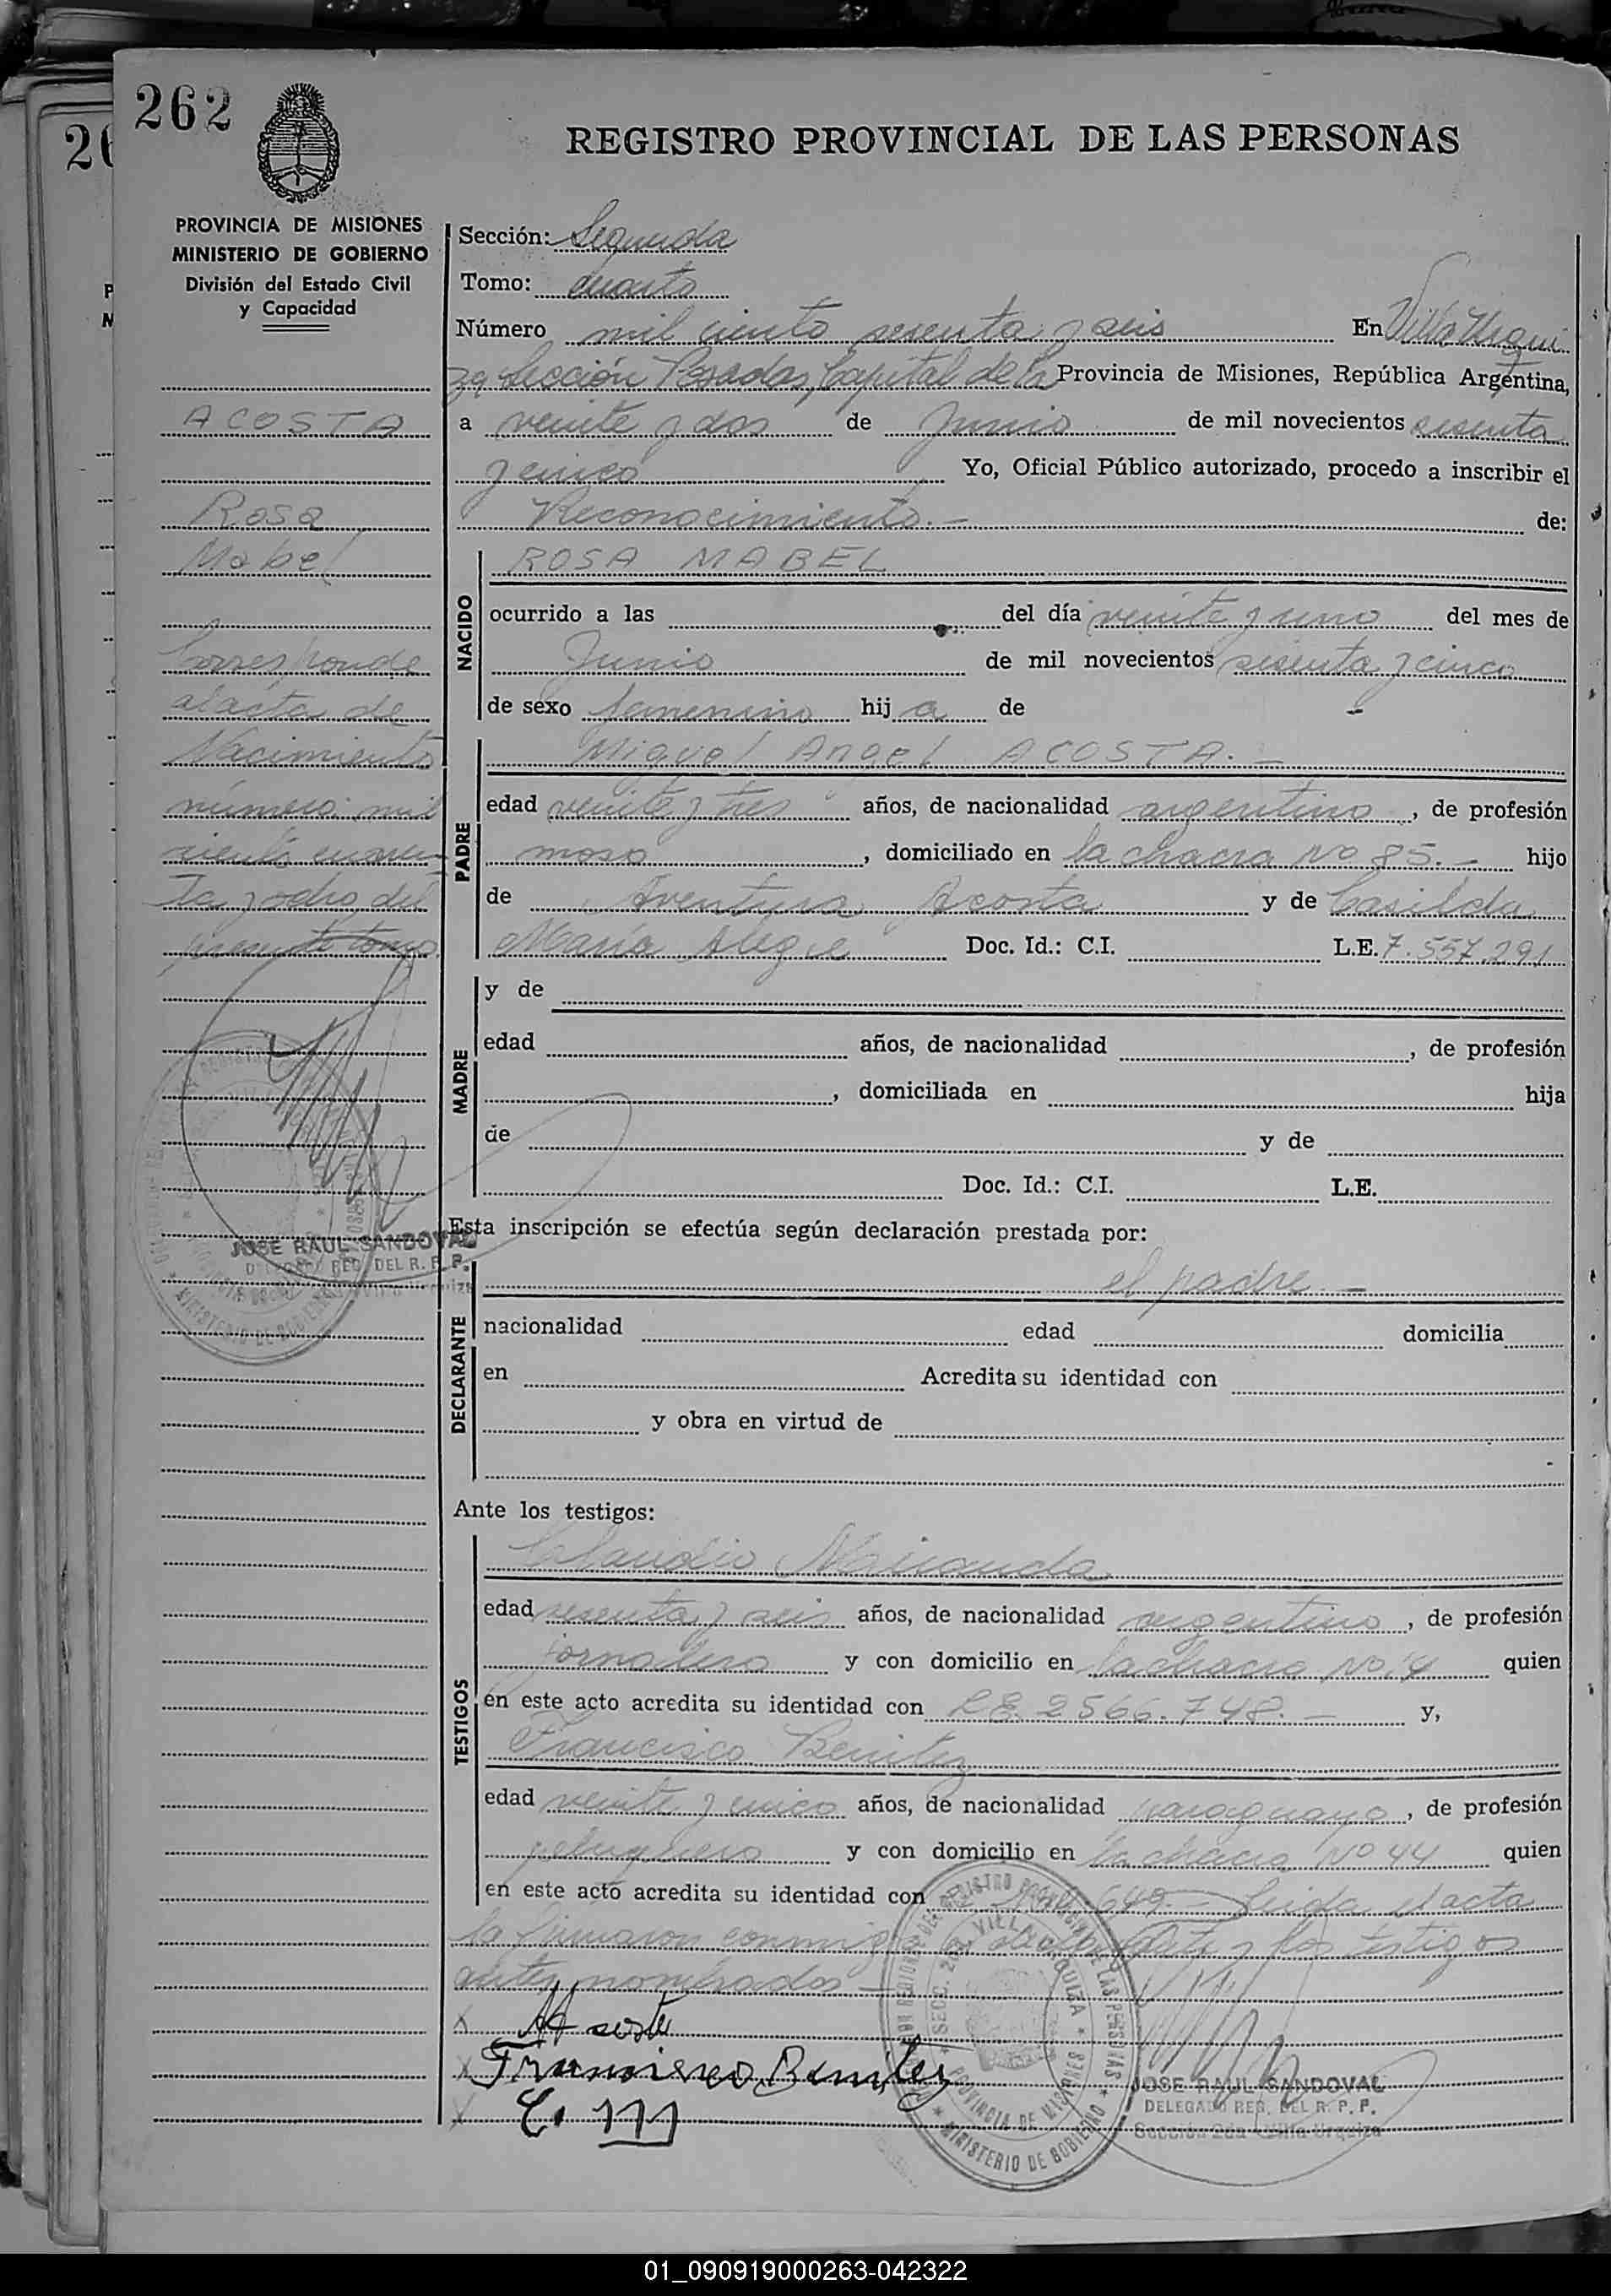 262
REGISTRO PROVINCIAL DE LAS PERSONAS
PROVINCIA DE MISIONES
MINISTERIO DE GOBIERNO
División del Estado Civil
y Capacidad
Sección: Segunda
Tomo: cuarto
Número mil ciento sesenta y seis En Villa Urqui
za Sección Posadas, Capital de la Provincia de Misiones, República Argentina,
a veinte y dos de Junio de mil novecientos sesenta
y cinco Yo, Oficial Público autorizado, procedo a inscribir el
Reconocimiento.- de:
ACOSTA
Rosa
Mabel
Corresponde
al acta de
Nacimiento
número mil
ciento cuaren-
ta y ocho del
presente tomo
JOSE RAUL SANDOVAL
NACIDO
ROSA MABEL
ocurrido a las del día veinte y uno del mes de
Junio de mil novecientos sesenta y cinco
de sexo femenino hija de
PADRE
Miguel Angel ACOSTA.-
edad veinte y tres años, de nacionalidad argentino, de profesión
moso, domiciliado en la chacra No 85.- hijo
de Aventura Acosta y de Casilda
María Alegre Doc. Id.: C.I. L.E. 7.557.291
MADRE
y de
edad años, de nacionalidad , de profesión
, domiciliada en hija
de y de
Doc. Id.: C.I. L.E.
Esta inscripción se efectúa según declaración prestada por:
DECLARANTE
el padre.-
nacionalidad edad domicilia
en Acredita su identidad con
y obra en virtud de
Ante los testigos:
TESTIGOS
Claudio Miranda
edad sesenta y seis años, de nacionalidad argentino, de profesión
jornalero y con domicilio en la chacra No. 4 quien
en este acto acredita su identidad con L.E. 2566.748.- y,
Francisco Benitez
edad veinte y cinco años, de nacionalidad paraguayo, de profesión
peluquero y con domicilio en la chacra No 44 quien
en este acto acredita su identidad con 649.- Leida el acta
la firmaron conmigo y los testigos
antes nombrados
Francisco Benitez
C. M
JOSE RAUL SANDOVAL
DELEGADO REG. DEL R. P. P.
Sección 2da Villa Urquiza
01_090919000263-042322